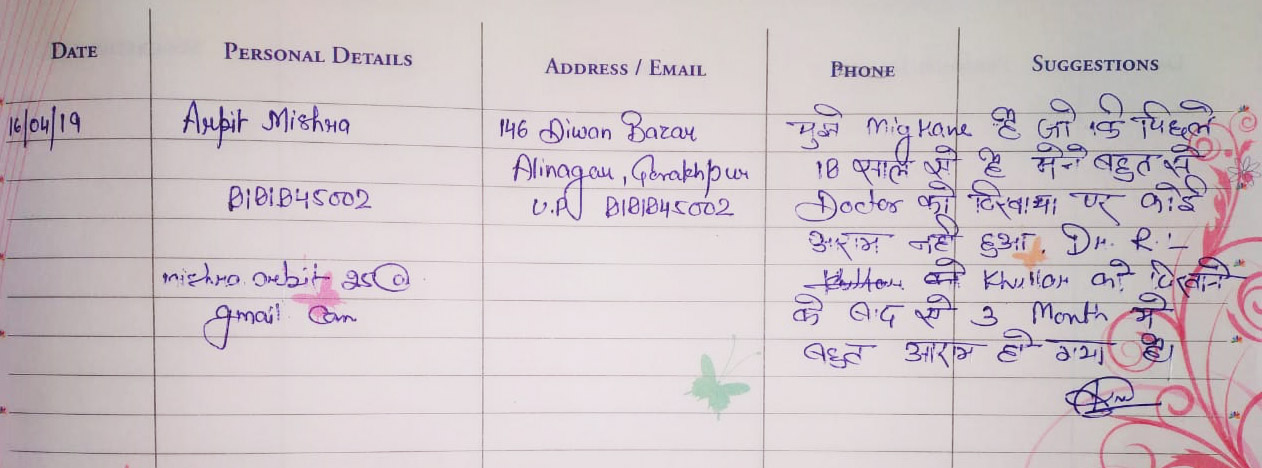 DATE PERSONAL DETAILS ADDRESS / EMAIL PHONE SUGGESTIONS
16/04/19 Arpit Mishra 146 Diwan Bazar मुझे Migrane है जो कि पिछले
Alinagar, Gorakhpur 18 साल से है मैने बहुत से
8181845002 U.P 8181845002 Doctor को दिखाया पर कोई
अराम नही हुआ. Dr. R.L
mishra.arbit 25@ Khullar को दिखाने
gmail com के बाद से 3 Month मे
बहुत आराम हो गया है।